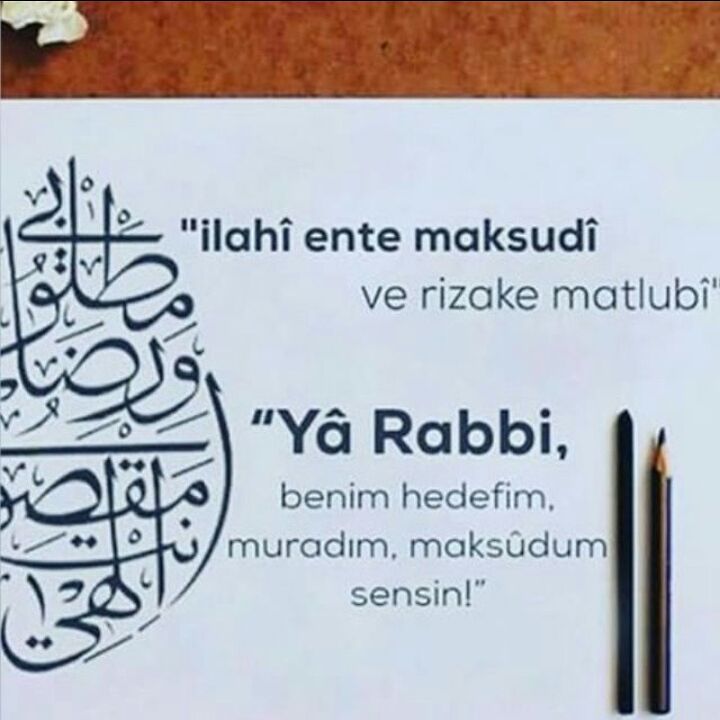 "ilahî ente maksudî
ve rizake matlubî"
"Yâ Rabbi,
benim hedefim,
muradım, maksûdum
sensin!"
مطلوبي
ورضا
مقصو
إلهي